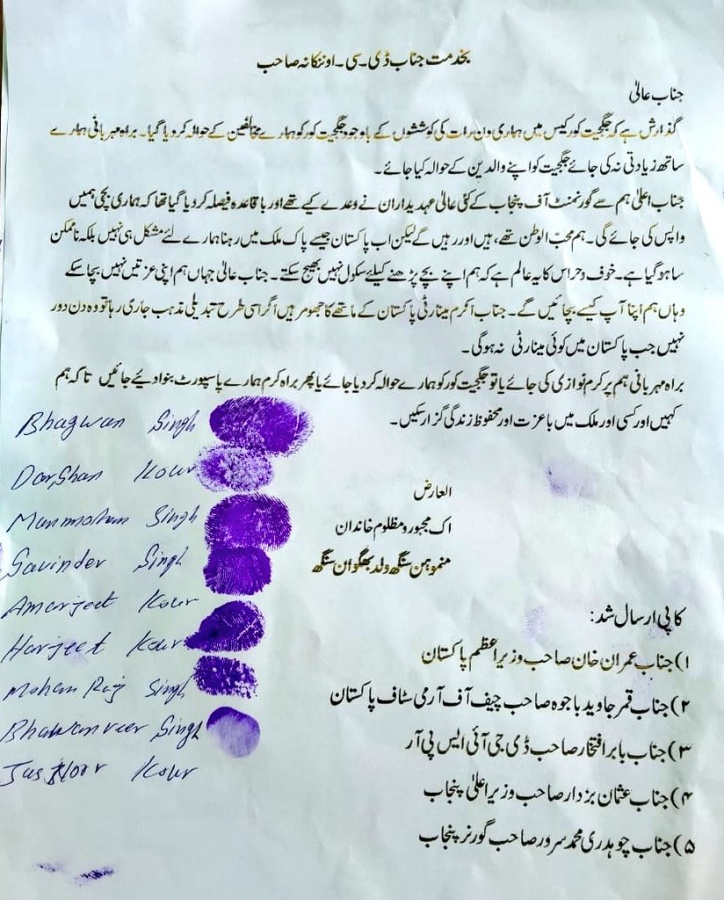 بخدمت جناب ڈی۔سی۔او ننکانہ صاحب
جناب عالیٰ
گذارش ہے کہ جگجیت کور کیس میں ہماری دن رات کی کوششوں کے باوجود جگجیت کور کو ہمارے مخالفین کے حوالہ کر دیا گیا۔ براہ مہربانی ہمارے
ساتھ زیادتی نہ کی جائے جگجیت کو اپنے والدین کے حوالہ کیا جائے۔
جناب اعلیٰ ہم سے گورنمنٹ آف پنجاب کے کئی عالی عہدیداران نے وعدے کیے تھے اور باقاعدہ فیصلہ کر دیا گیا تھا کہ ہماری بچی ہمیں
واپس کی جائے گی۔ ہم محب الوطن تھے، ہیں اور رہیں گے لیکن اب پاکستان جیسے پاک ملک میں رہنا ہمارے لئے مشکل ہی نہیں بلکہ ناممکن
سا ہو گیا ہے۔ خوف و حراس کا یہ عالم ہے کہ ہم اپنے بچے پڑھنے کیلئے سکول نہیں بھیج سکتے۔ جناب عالیٰ جہاں ہم اپنی عزتیں نہیں بچا سکے
وہاں ہم اپنا آپ کیسے بچائیں گے۔ جناب اکرم مینارٹی پاکستان کے ماتھے کا جھومر ہیں اگر اسی طرح تبدیلی مذہب جاری رہا تو وہ دن دور
نہیں جب پاکستان میں کوئی مینارٹی نہ ہوگی۔
براہ مہربانی ہم پر کرم نوازی کی جائے یا تو جگجیت کور کو ہمارے حوالہ کر دیا جائے یا پھر براہ کرم ہمارے پاسپورٹ بنوا دیئے جائیں تا کہ ہم
کہیں اور کسی اور ملک میں باعزت اور محفوظ زندگی گزار سکیں۔
Bhagwan Singh
Darshan Kour
Manmohan Singh
Savinder Singh
Amarjeet Kour
Harjeet Kour
Mohan Raj Singh
Singh
Kour
العارض
اک مجبور و مظلوم خاندان
منموہن سنگھ ولد بھگوان سنگھ
کاپی ارسال شد:
۱) جناب عمران خان صاحب وزیراعظم پاکستان
۲) جناب قمر جاوید باجوہ صاحب چیف آف آرمی سٹاف پاکستان
۳) جناب بابر افتخار صاحب ڈی جی آئی ایس پی آر
۴) جناب عثمان بزدار صاحب وزیراعلیٰ پنجاب
۵) جناب چوہدری محمد سرور صاحب گورنر پنجاب